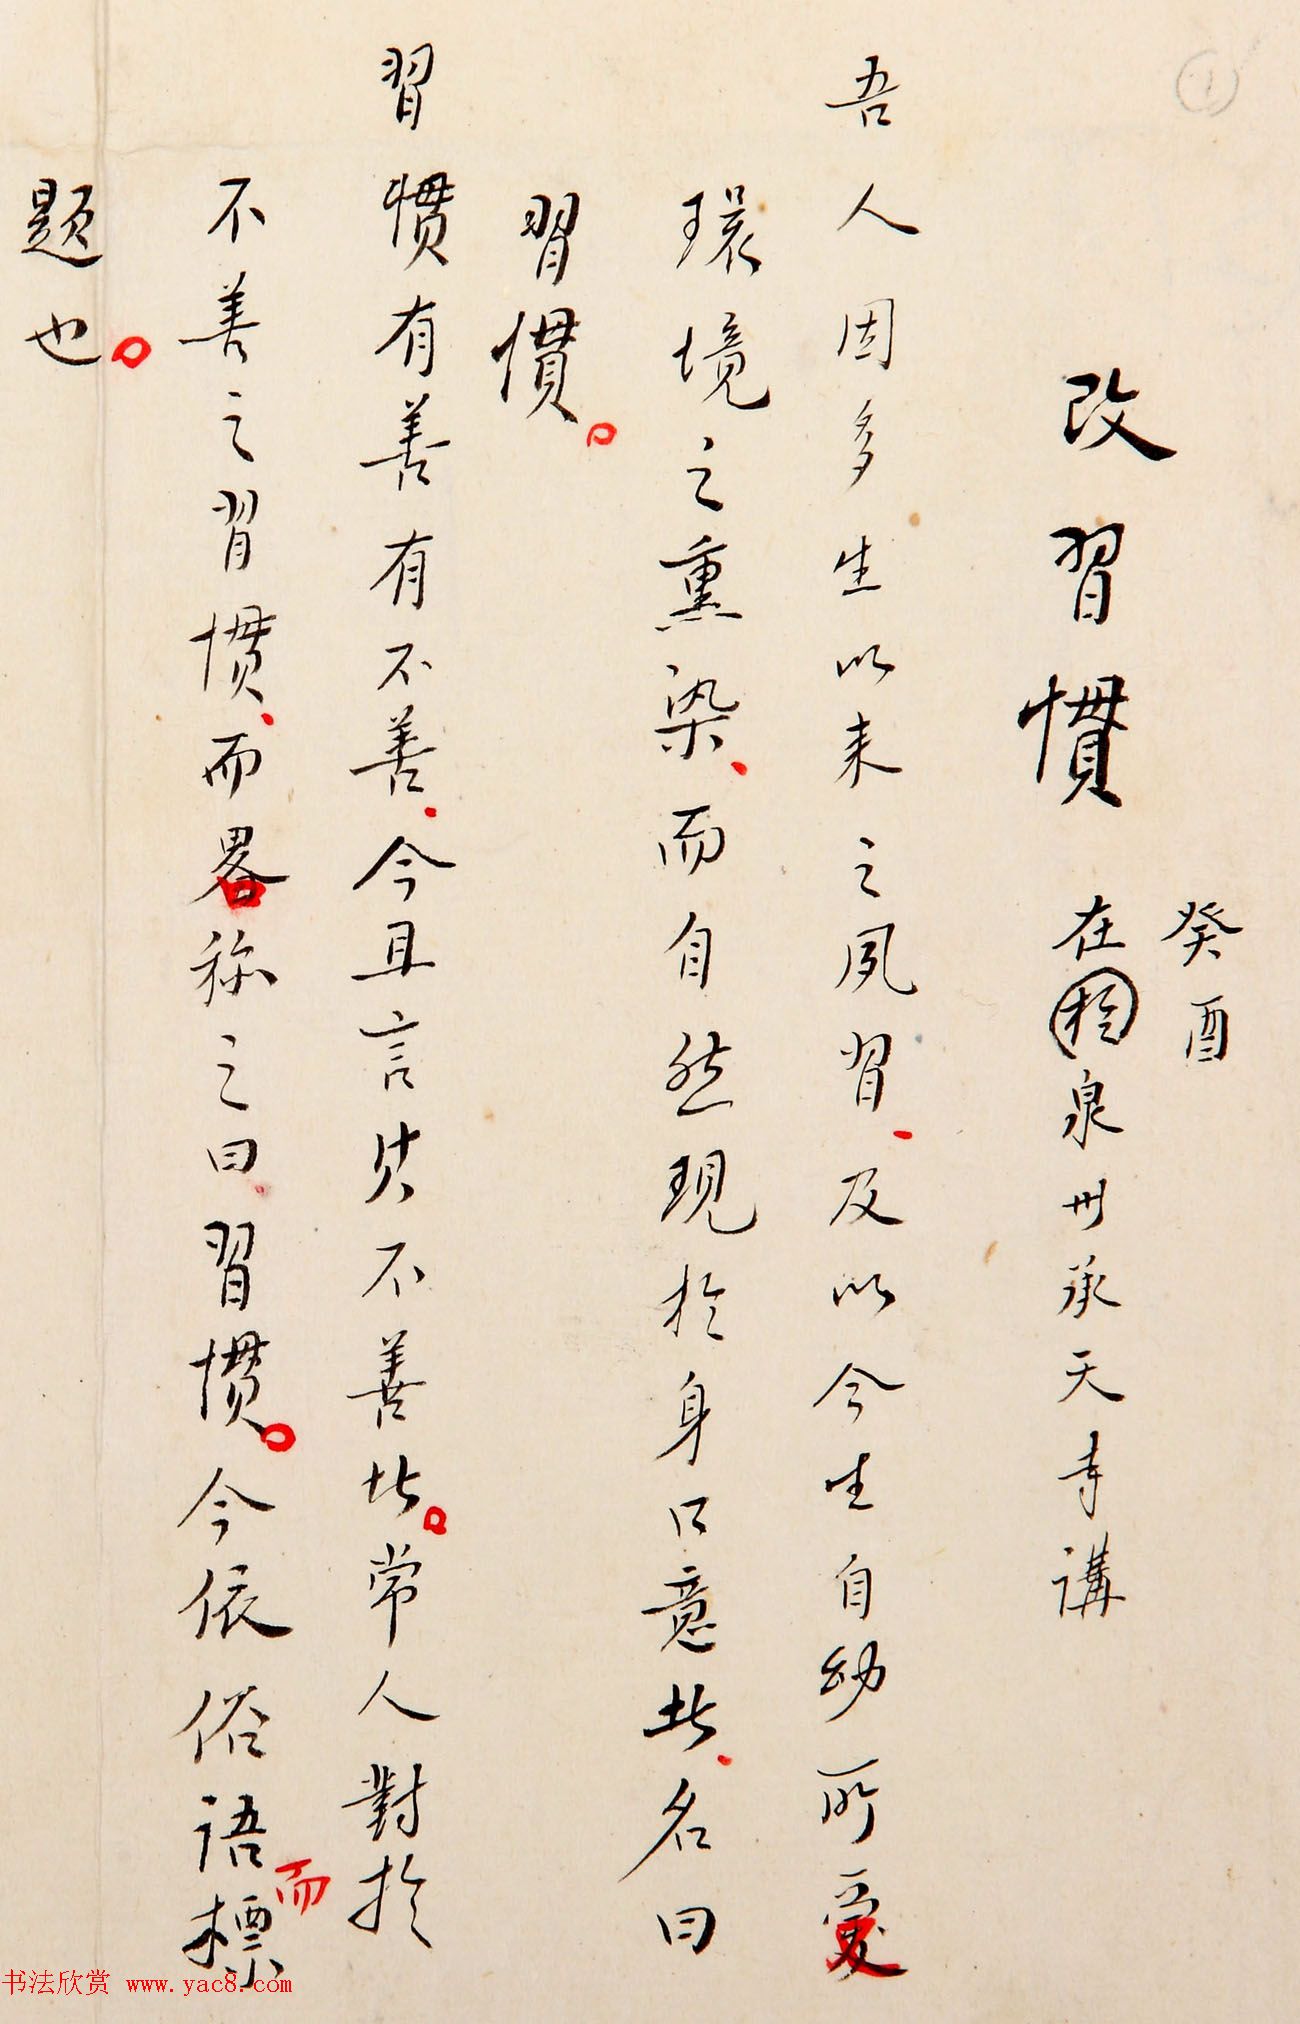 1
癸酉
改習慣 在於泉州承天寺講
吾人因多生以來之夙習、及以今生自幼所受
環境之熏染、而自然現於身口意者、名曰
習慣。
習慣有善有不善、今且言其不善者。常人對於
不善之習慣、而畧称之曰、習慣。今依俗語而標
題也。
书法欣赏 www.yac8.com